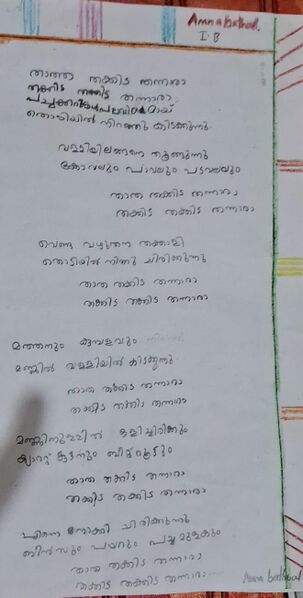 Amna bathool.
I. B
താത്ത തക്കിട തന്നാരാ
തക്കിട തക്കിട തന്നാരാ
പച്ചക്കറികൾ പലവിധമായ്
തൊടിയിൽ നിറഞ്ഞു കിടക്കുന്നു.
വള്ളിയിലങ്ങനെ തൂങ്ങുന്നു
കോവലും പാവലും പടവലവും
താത്ത തക്കിട തന്നാരാ
തക്കിട തക്കിട തന്നാരാ
വെണ്ട വഴുതന തക്കാളി
തൊടിയിൽ നിന്നു ചിരിക്കുന്നു
താത്ത തക്കിട തന്നാരാ
തക്കിട തക്കിട തന്നാരാ
മത്തനും കുമ്പളവും
മണ്ണിൽ വള്ളിയിൽ കിടക്കുന്നു.
താത്ത തക്കിട തന്നാരാ
തക്കിട തക്കിട തന്നാരാ
മണ്ണിനുള്ളിൽ ഒളിച്ചിരിക്കും
ക്യാരറ്റ് കൂട്ടനും ബീറ്റ്റൂട്ടും
താത്ത തക്കിട തന്നാരാ
തക്കിട തക്കിട തന്നാരാ
എന്നെ നോക്കി ചിരിക്കുന്നു
ബീൻസും പയറും പച്ചമുളകും
താത്ത തക്കിട തന്നാരാ
തക്കിട തക്കിട തന്നാരാ....
Amna bathool